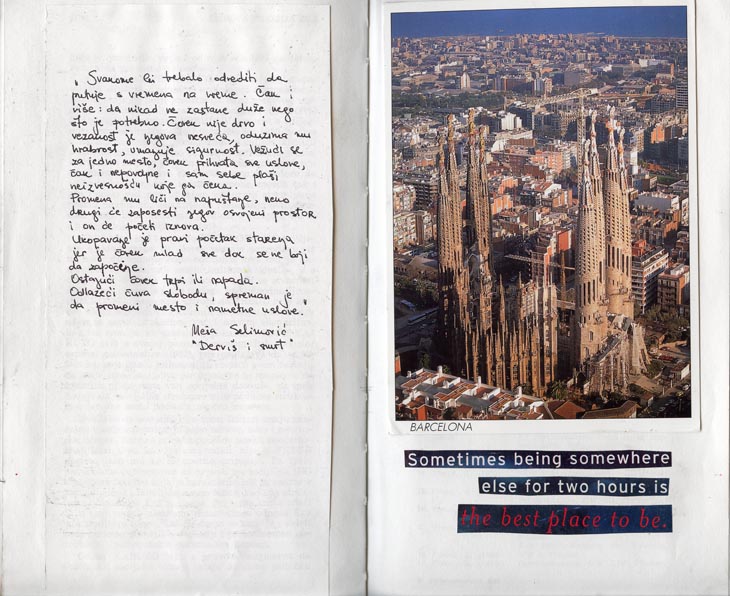 "Svakome bi trebalo odrediti da
putuje s vremena na vreme. Čak i
više: da nikad ne zastane duže nego
što je potrebno. Čovek nije drvo i
vezanost je njegova nesreća, oduzima mu
hrabrost, umanjuje sigurnost. Vežući se
za jedno mesto, čovek prihvata sve uslove,
čak i nepovoljne i sam sebe plaši
neizvesnošću koja ga čeka.
Promena mu liči na napuštanje, neko
drugi će zaposesti njegov osvojeni prostor
i on će početi iznova.
Ukopavanje je pravi početak starenja
jer je čovek mlad sve dok se ne boji
da započinje.
Ostajući čovek trpi ili napada.
Odlazeći čuva slobodu, spreman je
da promeni mesto i nametne uslove."
Meša Selimović
"Derviš i smrt"
BARCELONA
Sometimes being somewhere
else for two hours is
the best place to be.